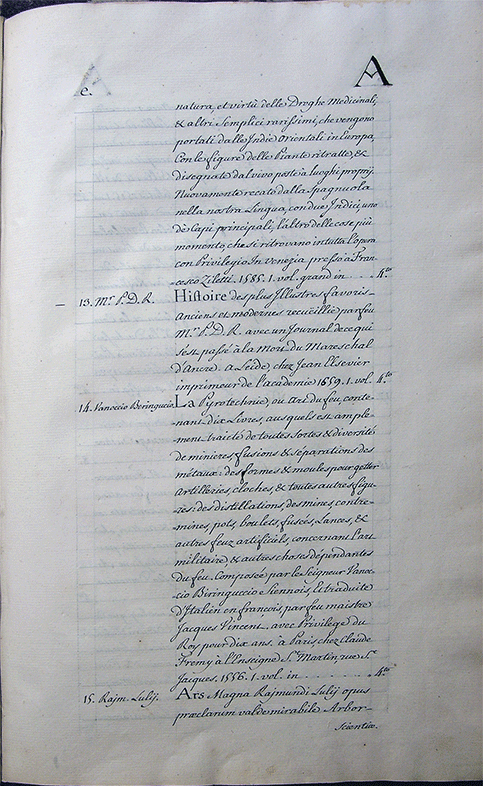 A
e.
natura, et virtù delle Droghe Medicinali,
& altri Semplici rarissimi, che vengono
portati dalle Indie Orientali in Europa,
Con le figure delle Piante ritratte, &
disegnate dal vivo poste a luoghi proprj.
Nuovamente recato dalla Spagnuola
nella nostra Lingua, con due Indici, uno
de Capi principali, l'altro delle cose più
momento, che si ritrovano in tutta l'opera
con Privilegio In Venezia presso a Fran-
-cesco Ziletti. 1585. 1. vol. grand in 4.to
13. Mr. P. D. R. Histoire des plus Illustres favoris
Anciens et modernes recueïllie par feu
Mr. P. D. R. avec un Journal de ce qui
s'est passé à la Mort du Mareschal
d'Ancre. a Leide, chez Jean Elsevier
imprimeur de l'academie 1659. 1. vol. 4.to
14. Vanoccio Beringuccio. La Pyrotechnie, ou Art du feu, conte-
nant dix Livres, ausquels est ample-
ment traicté de toutes sortes & diversité
de minieres, fusions & séparations des
métaux: des formes & moules pour getter
Artilleries, cloches, & toutes autres figu-
res: des distillations, des mines, contre-
mines, pots, boulets, fusées, Lances, &
autres feuz artificiels, concernans l'art
militaire, & autres choses dépendantes
du feu. Composée par le Seigneur Vanoc-
cio Beringuccio Siennois, Et traduite
d'Italien en françois, par feu maistre
Jacques Vincent. avec Privilege du
Roy pour dix ans. à Paris, chez Claude
Fremy à l'Enseigne St. Martin, rue St.
Jacques. 1556. 1. vol. in 4.to
15. Rajm. Lulij. Ars Magna Rajmundi Lulij opus
præclarum valde mirabile Arbor-
Scientiæ.